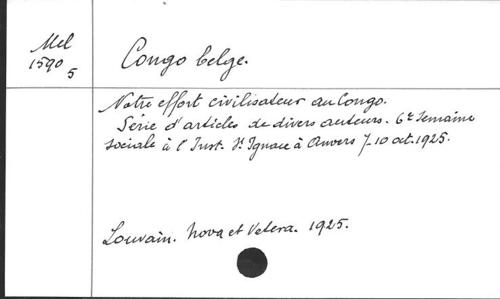 Mel
1590
5
Congo belge.
Notre effort civilisateur au Congo.
Série d'articles de divers auteurs. 6e Semaine
sociale à l'Inst. St Ignace à Anvers 7-10 oct. 1925.
Louvain. Nova et Vetera. 1925.